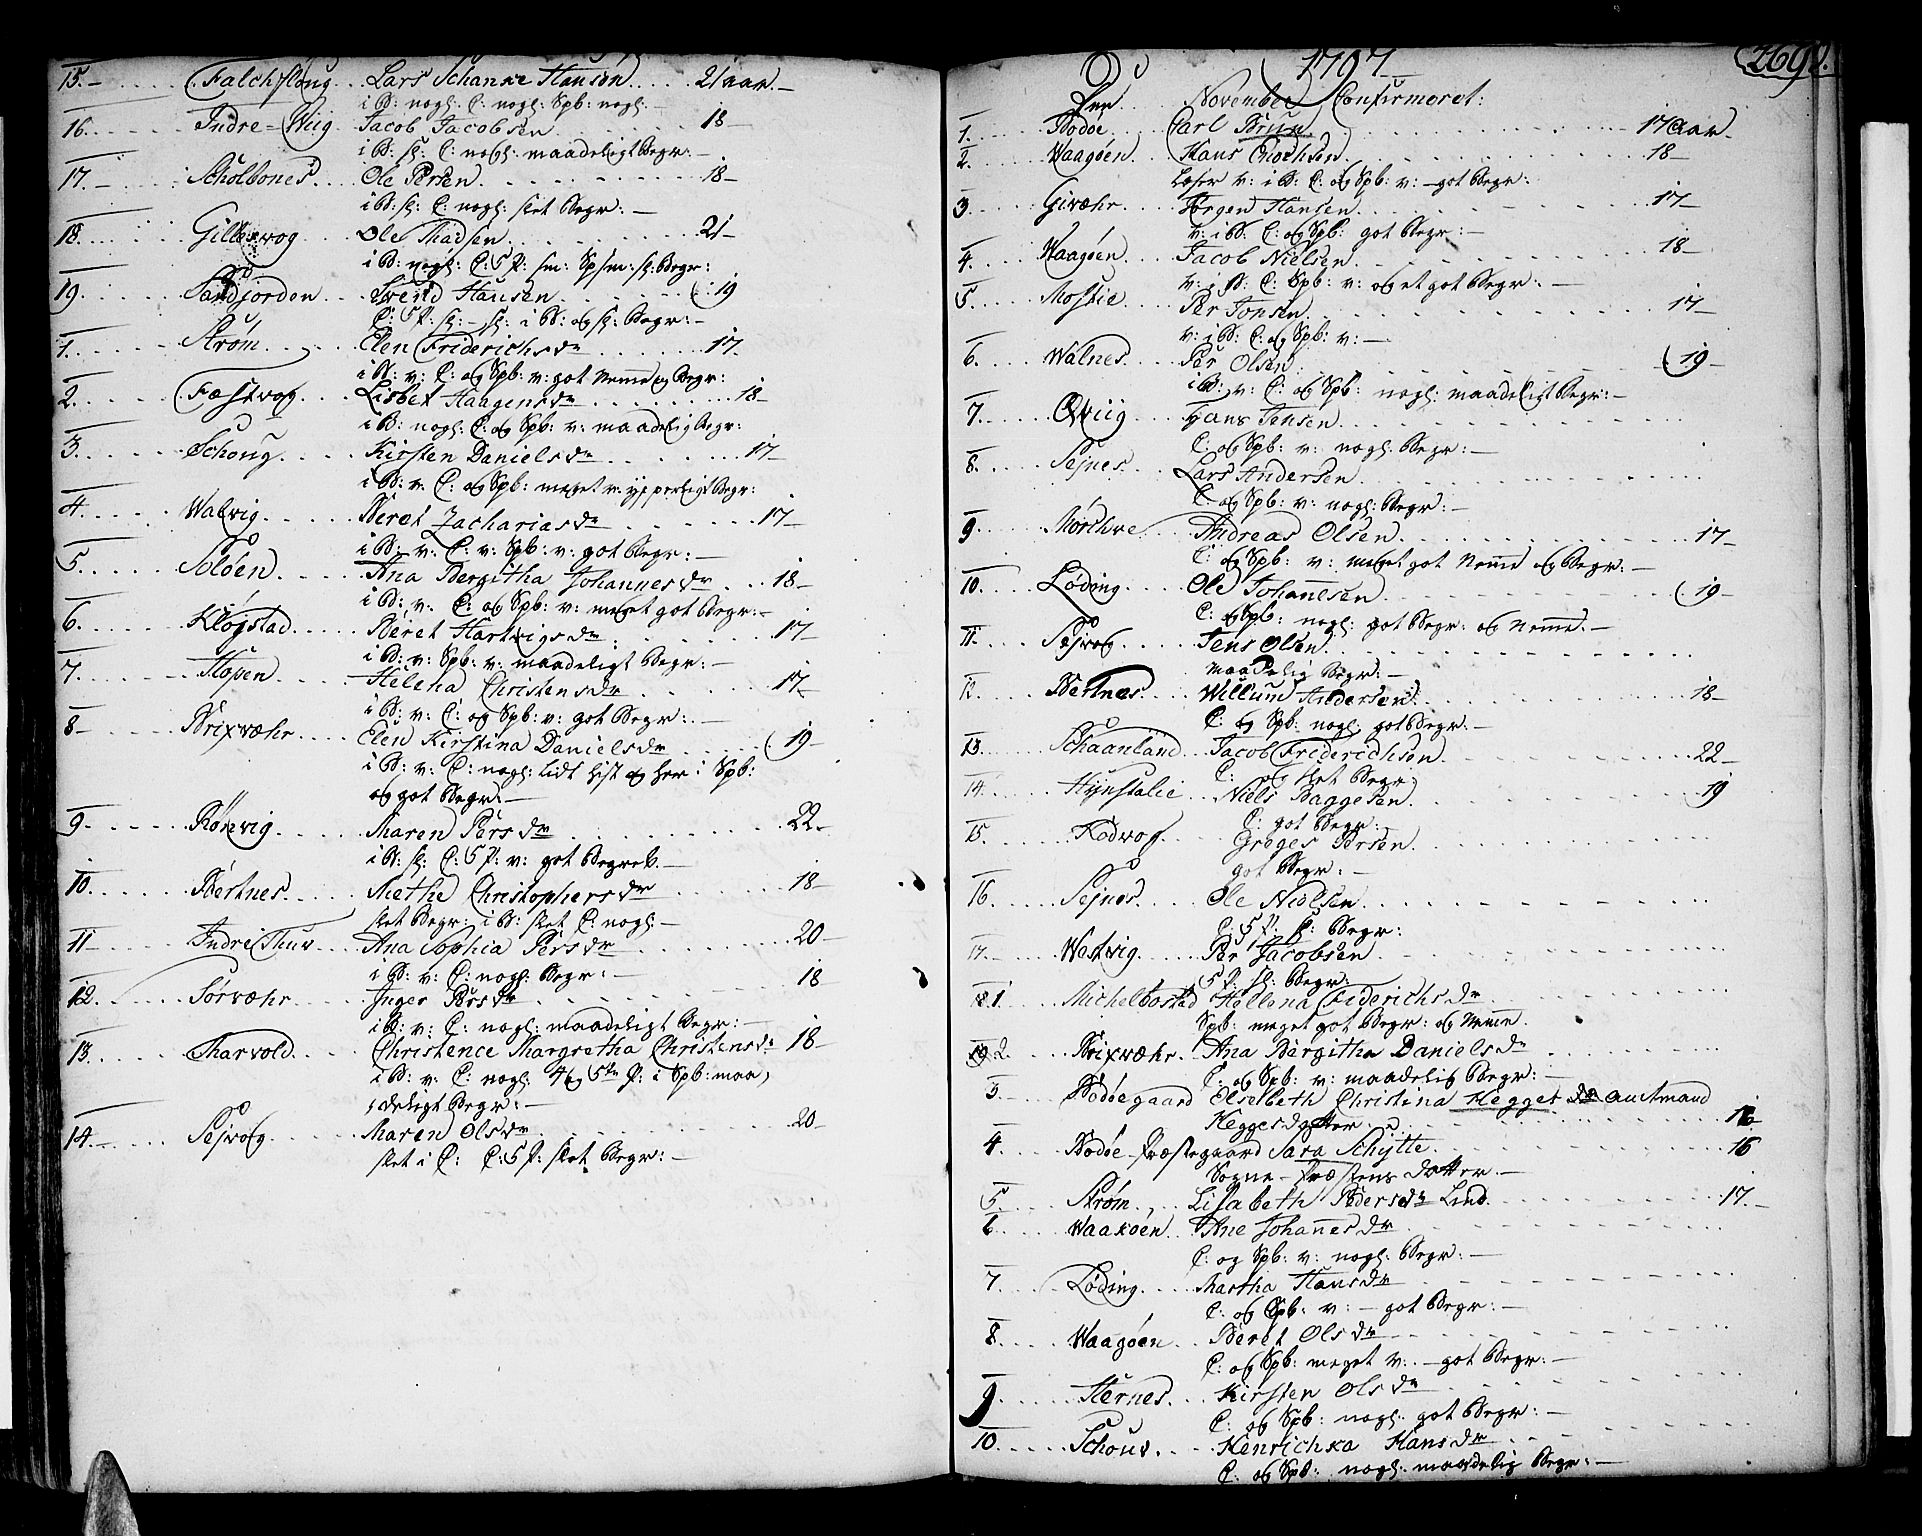 15. Falchfloug Lars Schanke Hansen 21 aar
i B: nogl: C: nogl: Spb: nogl:
16. Indre-Wiig Jacob Jacobsen 18
i B: sl: C: nogl: maadeligt Begr:
17. Scholbones Ole Persen 18
i B: sl: C: nogl: slet Begr:
18. Gillesvog Ole Madsen 21
i B: nogl: C: 5 P: sm: Sp sm: sl: Begr:
19. Sandjorden Svend Hansen 19
C: 5 P: sl: sl: i B: og sl: Begr:
1. Strøm Elen Friderichsdr 17
i B: v: C: og Spb: v: got Nemme og Begr:
2. Fæstvog Lisbet Haagensdr 18
i B: nogl: C: og Spb: v: maadelig Begr:
3. Schoug Kirsten Danielsdr 17
i B: v: C: og Spb: meget v: ypperligt Begr:
4. Walvig Beret Zachariasdr 17
i B: v: C: v: Spb: v: got Begr:
5. Soløen Ana Bergitha Johannesdr 18
i B: v: C: og Spb: v: meget got Begr:
6. Kløgstad Beret Hartvigsdr 17
i B: v: Spb: v: maadeligt Begr:
7. Hopen Helena Christensdr 17
i B: v: C: og Spb: v: got Begr:
8 Brixvæhr Elen Kirstina Danielsdr 19
i B: v: C: nogl: lidt hist og her i Spb:
og got Begr:
9. Rønvig Maren Persdr 22
i B: sl: C: 5 P: v: got Begreb.
10. Bertnes Methe Christophersdr 18
slet Begr: i B: slet C: nogl:
11 Indre Thuv Ana Sophia Persdr 20
i B: v: C: nogl: Begr:
12. Sørvæhr Inger Persdr 18
i B: v: C: nogl: maadeligt Begr:
13. Tharvold Christence Margretha Christensdr 18
i B: v: C: nogl: 4 og 5te P: i Spb: maa
deligt Begr:
14. Sejvog Maren Olsdr 20
slet i C: C: 5 P: slet Begr:
1797 269.
Den November Confirmeret:
1. Bodøe Carl Brun 17 aar
2. Waagøen Hans Enochsen 18
Læser v: i B: C: og Spb: v: got Begr:
3 Givæhr Jørgen Hansen 17
v: i B: C: og Spb: got Begr:
4. Waagøen Jacob Nielsen 18
v: i B: C: Spb: v: og et got Begr:
5. Mostie Per Jonsen 17
v: i B: C: og Spb: v:
6. Walnes Per Olsen 19
i B: v: C: og Spb: nogl: maadeligt Begr:
7. Qwiig Hans Jensen
C: og Spb: v: nogl: Begr:
8. Sejnes Lars Andersen
C: og Spb: v: nogl: Begr:
9. Mørchve Andreas Olsen 17
C: og Spb: v: meget got Nemme og Begr:
10. Løding Ole Johannesen 19
C: og Spb: nogl: got Begr: og Nemme.
11. Sejvog Jens Olsen
maadelig Begr:
12. Bertnes Willum Andersen 18
C: og Spb: nogl: got Begr:
13. Schaanland Jacob Friderichsen 22
C: og slet Begr:
14. Hynstalie Niels Baggesen 19
C: got Begr:
15. Kodvog Greges Persen
got Begr:
16. Sejnes Ole Nielsen
C: 5 P: sl: Begr:
17. Westvig Per Jacobsen
5 P: sl: Begr:
1 Michelbostad Hellena Frederichsdr
Spb: meget got Begr: og Nemme.
2. Brixvæhr Ana Bergitha Danielsdr
C: og Spb: v: maadelig Begr:
3 Bodøegaard Elselbeth Christina Hegget dr Amtmand
Heggesdatter 16
4. Bodøe Præstegaard Sara Schytte 16
Sogne-Præstens Datter
5. Strøm Lisabeth Pedersdr Lind 17.
6 Waaxøen Ane Johannesdr
C: og Spb: v: nogl: Begr:
7 Løding Martha Hansdr
C: og Spb: v: got Begr:
8 Waagøen Beret Olsdr
C: og Spb: meget v: got Begr:
9 Hernes Kirsten Olsdr
C: og Spb: nogl: got Begr:
10. Schouv Henrichka Hansdr
C: og Spb: nogl: maadelig Begr: